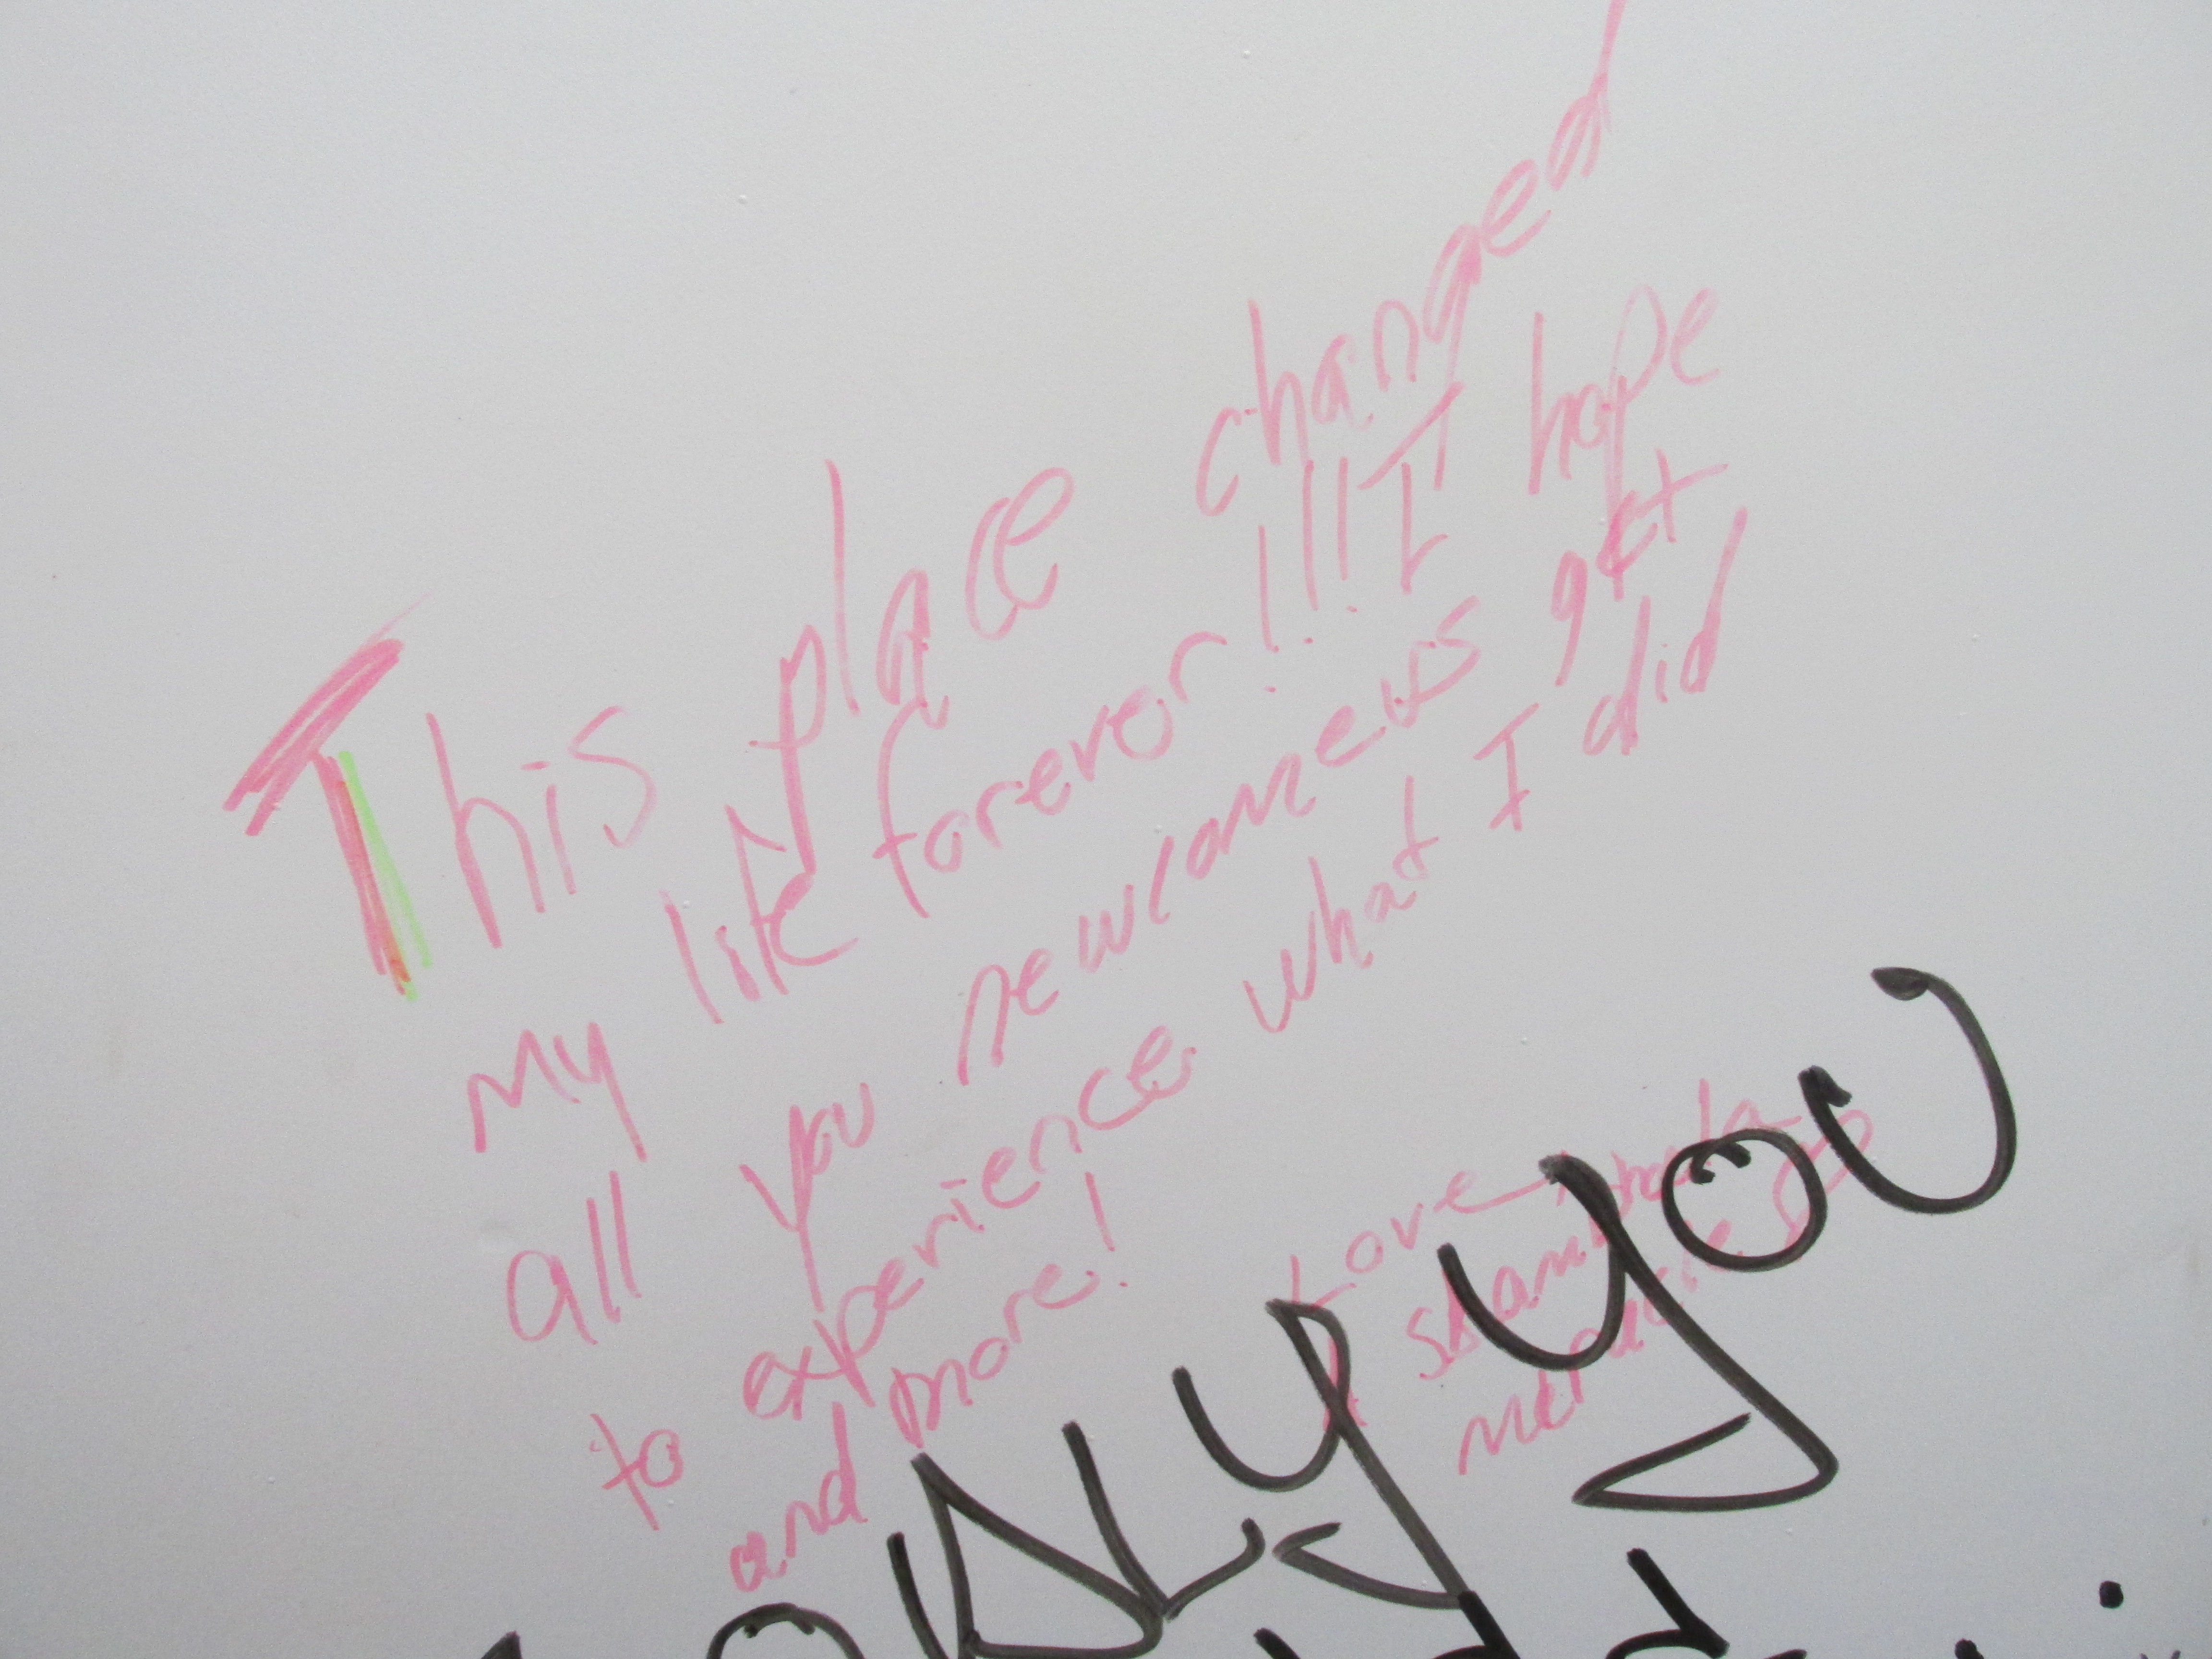 This place changed
My life forever!!! I hope
all you newcomers get
to experience what I did
and more!
Love
ONLY YOU